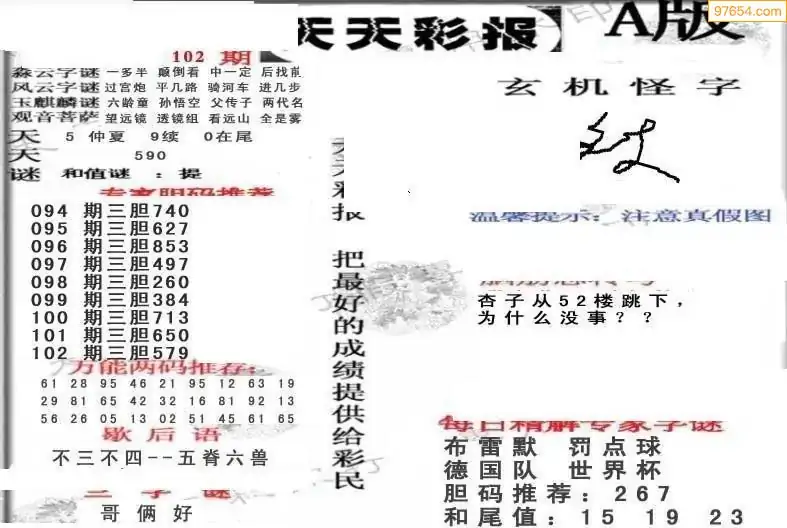 97654.com
天天彩报】
A版
102 期
森云字谜 一多半 颠倒看 中一定 后找前
风云字谜 过宫炮 平几路 骑河车 进几步
玉麒麟谜 六龄童 孙悟空 父传子 两代名
观音菩萨 望远镜 透镜组 看远山 全是雾
天 5 仲夏 9续 0在尾
天 590
谜 和值谜 : 提
专家胆码推荐
094 期三胆740
095 期三胆627
096 期三胆853
097 期三胆497
098 期三胆260
099 期三胆384
100 期三胆713
101 期三胆650
102 期三胆579
万能两码推荐:
61 28 95 46 21 95 12 63 19
29 81 65 42 32 16 81 92 13
56 26 05 13 02 51 45 61 65
歇后语
不三不四--五脊六兽
三字谜
哥俩好
天天彩报 把最好的成绩提供给彩民
玄机怪字
温馨提示: 注意真假图
脑筋急转弯
杏子从52楼跳下,
为什么没事??
每日精解专家字谜
布雷默 罚点球
德国队 世界杯
胆码推荐: 267
和尾值: 15 19 23